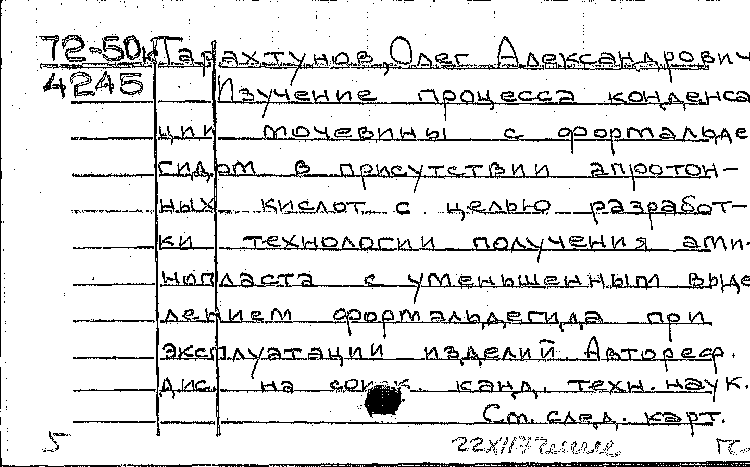 72-50к Тарахтунов, Олег Александрович
4245 Изучение процесса конденса
ции мочевины с формальде
гидом в присутствии апротон-
ных кислот с целью разработ-
ки технологии получения ами-
нопласта с уменьшенным выде
лением формальдегида при
эксплуатации изделий. Автореф.
дис. на соиск. канд. техн. наук.
См. след. карт.
5